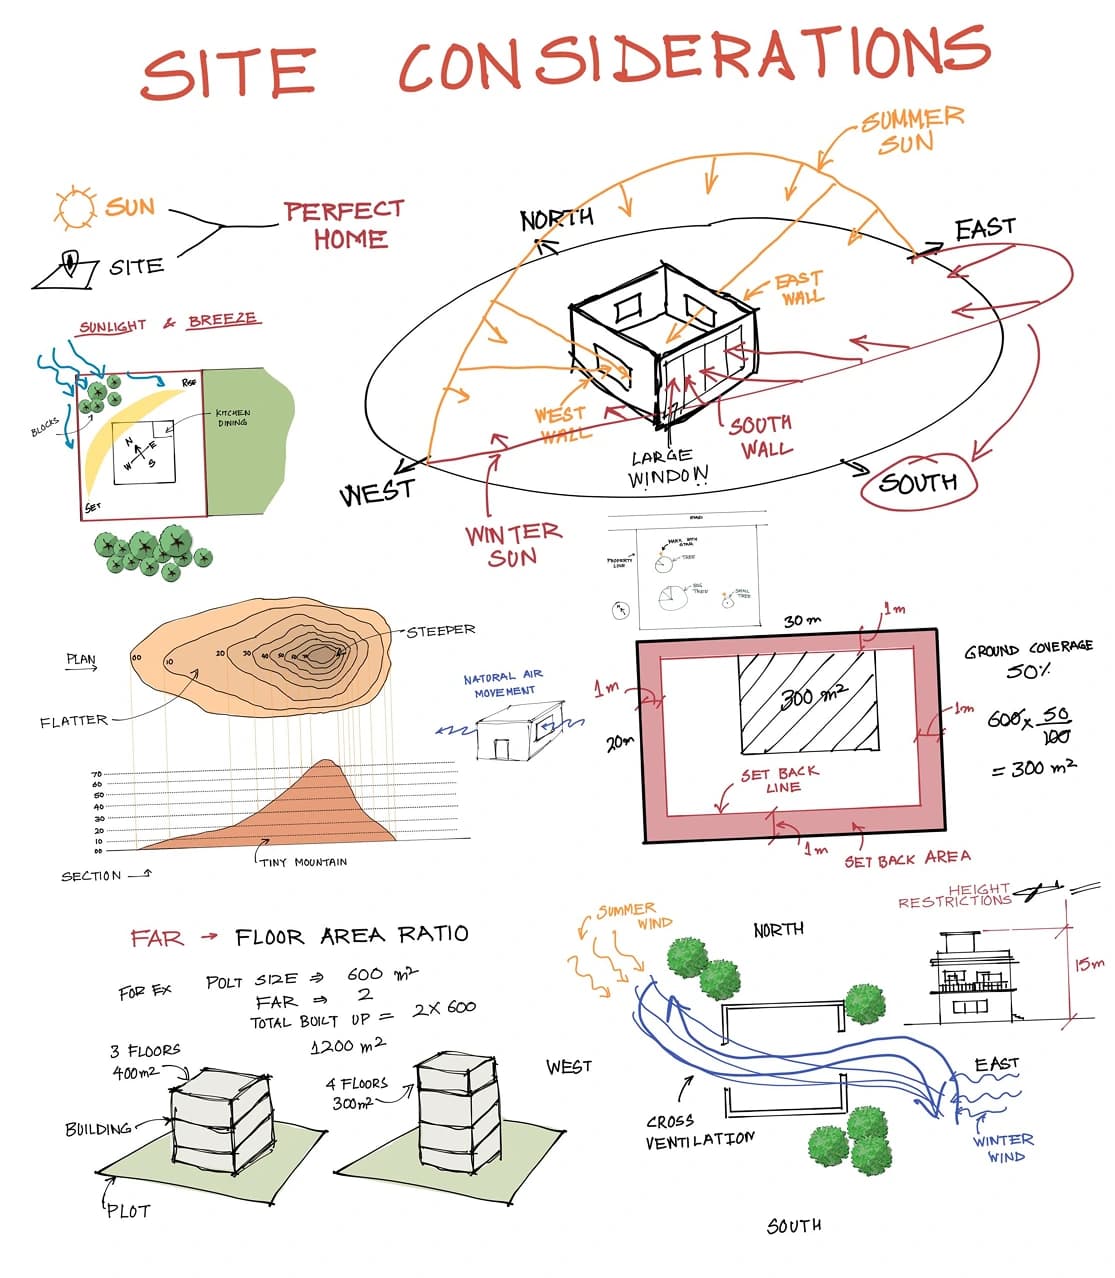 SITE CONSIDERATIONS
SUN
SITE
PERFECT
HOME
SUMMER
SUN
NORTH
EAST
EAST
WALL
WEST
WALL
SOUTH
WALL
LARGE
WINDOW
WEST
SOUTH
WINTER
SUN
SUNLIGHT & BREEZE
RISE
BLOCKS
KITCHEN
DINING
N
E
W
S
SET
ROAD
PROPERTY
LINE
TREE
BIG
TREE
SMALL
TREE
N
PLAN
00
10
20
30
40
50
STEEPER
FLATTER
70
60
50
40
30
20
10
00
TINY MOUNTAIN
SECTION
NATURAL AIR
MOVEMENT
30 m
1m
1m
20m
300 m²
1m
SET BACK
LINE
1m
SET BACK AREA
GROUND COVERAGE
50%
600 x 50
100
= 300 m²
FAR → FLOOR AREA RATIO
FOR EX
POLT SIZE ⇒ 600 m²
FAR ⇒ 2
TOTAL BUILT UP = 2X600
1200 m²
3 FLOORS
400m²
BUILDING
PLOT
4 FLOORS
300m²
SUMMER
WIND
NORTH
WEST
EAST
CROSS
VENTILATION
WINTER
WIND
SOUTH
HEIGHT
RESTRICTIONS
15m